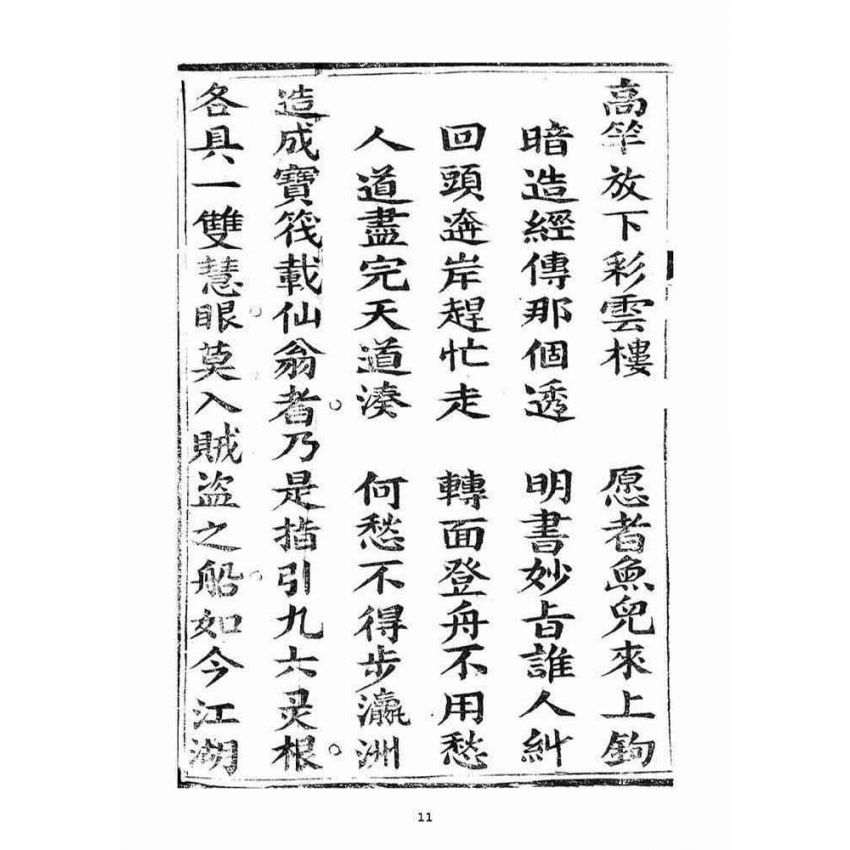 高竿放下彩雲樓　愿者魚兒來上鉤
暗造經傳那個透　明書妙旨誰人糾
回頭逩岸趕忙走　轉面登舟不用愁
人道盡完天道湊　何愁不得步瀛洲
造成寶筏載仙翁者。乃是指引九六灵根。
各具一雙慧眼。莫入賊盜之船。如今江湖
11